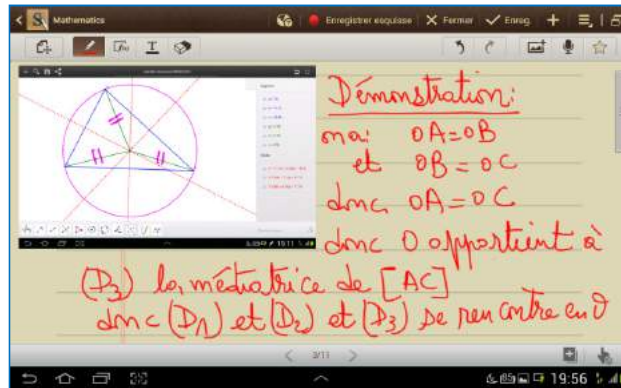 Mathematics
Enregistrer esquisse
Fermer
Enreg.
Démonstration:
on a: OA=OB
et OB=OC
donc OA=OC
donc O appartient à
(D3) la médiatrice de [AC]
donc (D1) et (D2) et (D3) se rencontre en O
15:11
3/11
19:56